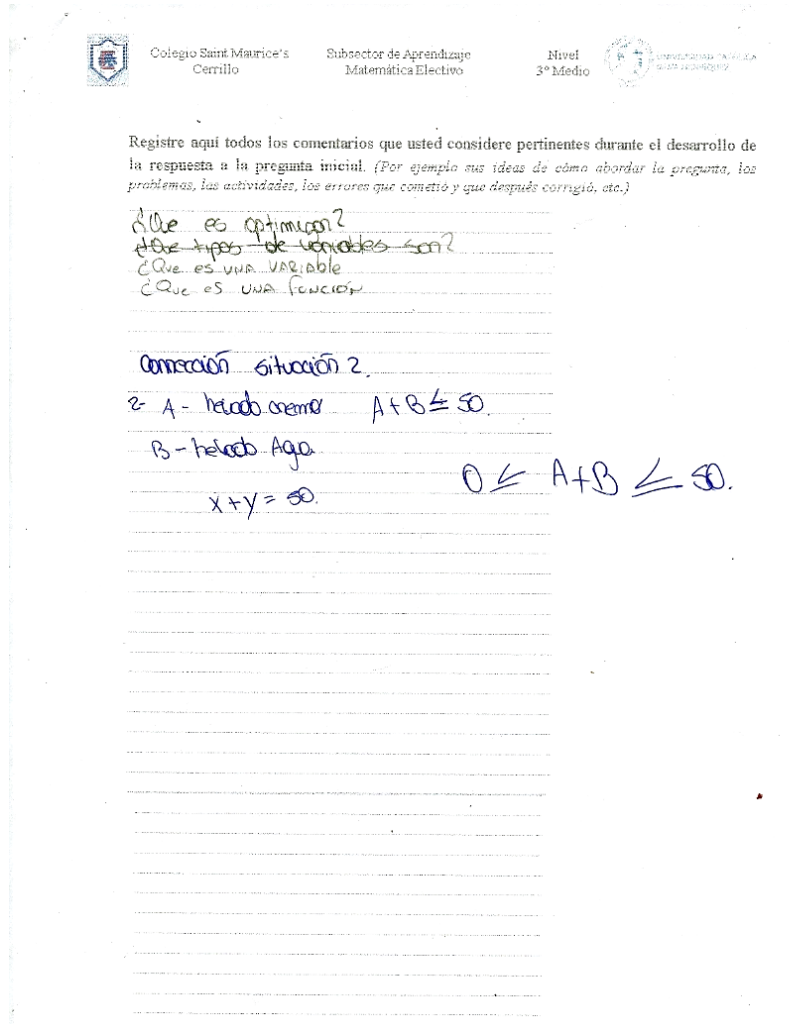 Colegio Saint Maurice's
Cerrillo
Subsector de Aprendizaje
Matemática Electivo
Nivel
3º Medio
Registre aquí todos los comentarios que usted considere pertinentes durante el desarrollo de
la respuesta a la pregunta inicial. (Por ejemplo sus ideas de cómo abordar la pregunta, los
problemas, las actividades, los errores que cometió y que después corrigió, etc.)
¿Que es
¿Que tipos de variables son?
¿Que es UNA VARIAble
¿Que es UNA función
Corrección situación 2.
2- A - helado crema A + B ≤ 50.
B - helado Agua
0 ≤ A + B ≤ 50.
x + y = 50.